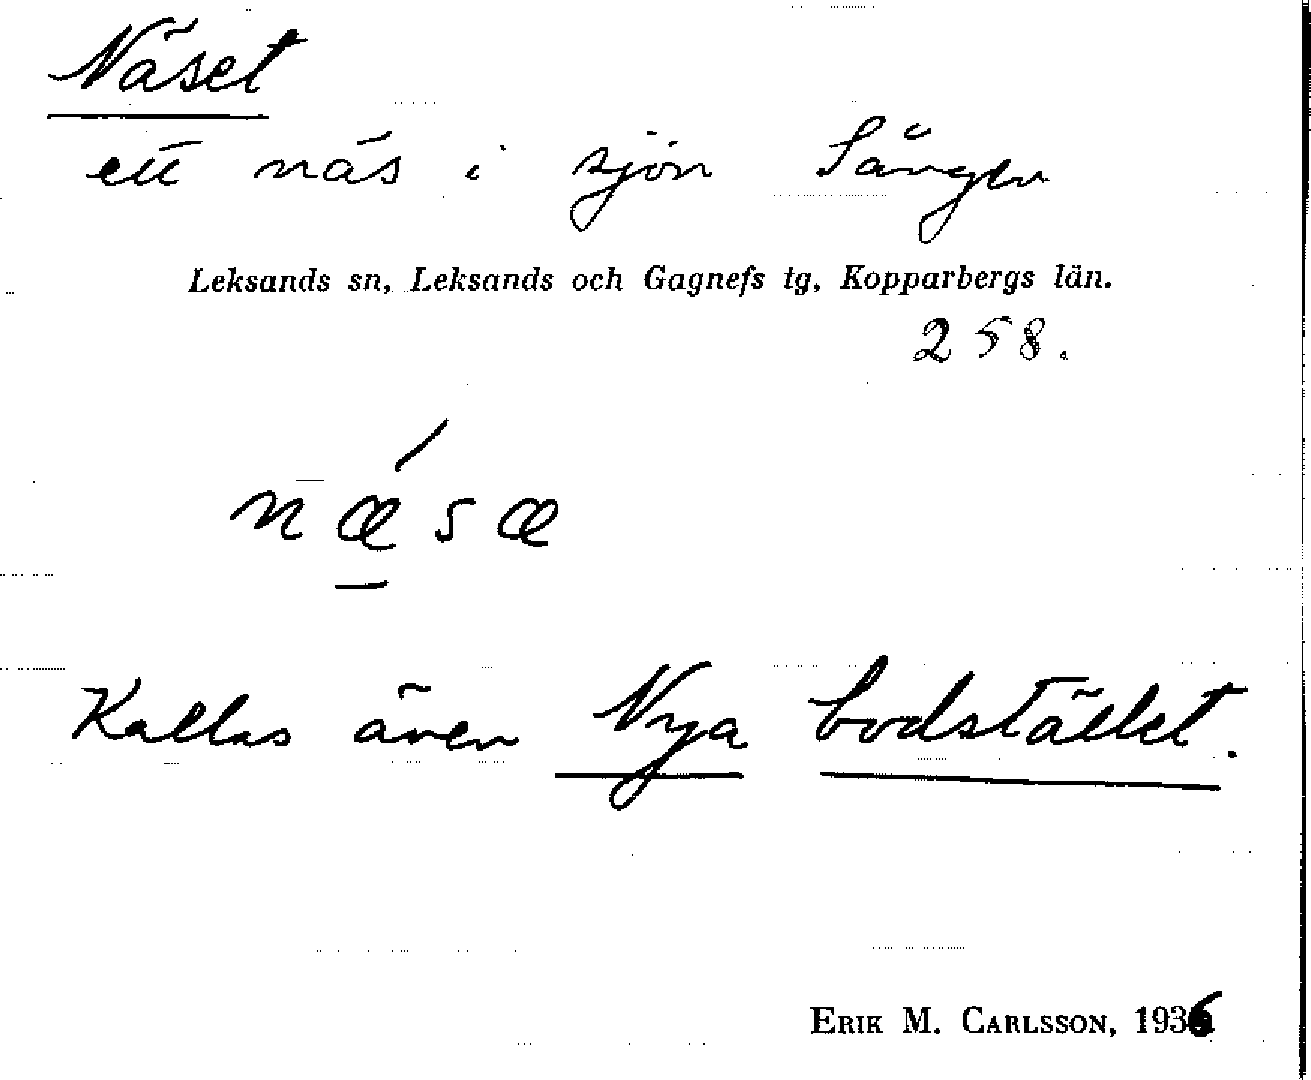 Näset
ett näs i sjön Sången
Leksands sn, Leksands och Gagnefs tg, Kopparbergs län.
258.
nǽ̱sæ
Kallas även Nya bodstället.
ERIK M. CARLSSON, 1936